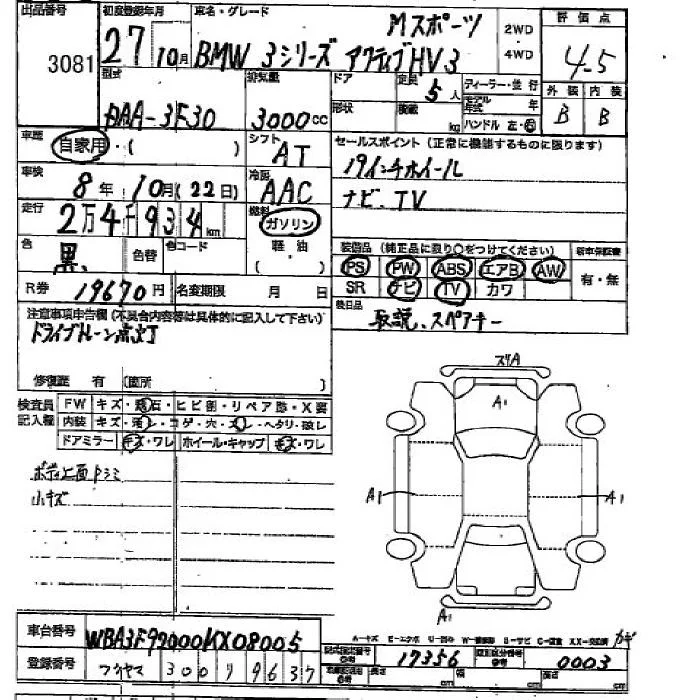 出品番号 初度登録年月 車名・グレード 評価点
3081 27 10月 BMW 3シリーズ アクティブHV3 Mスポーツ 2WD 4WD 4.5
型式 排気量 ドア 定員 5人 ディーラー・並行 外装 内装
DAA-3F30 3000cc 形状 積載 kg モデル年式 年 ハンドル 左・右 B B
車歴 自家用・( ) シフト AT セールスポイント(正常に機能するものに限ります)
車検 8年 10月(22日) 冷房 AAC 19インチホイール
ナビ、TV
走行 2万4千934km 燃料 ガソリン
色 黒 色替 色コード 軽油 ( ) 装備品(純正品に限り○をつけてください) 新車保証書
PS PW ABS エアB AW 有・無
R券 19670円 名変期限 月 日 SR ナビ TV カワ
注意事項申告欄(不具合内容等は具体的に記入して下さい) 後日品 取説、スペアキー
ドライブトレーン点灯
修復歴 有 (箇所 )
検査員記入欄 FW キズ・飛石・ヒビ割・リペア跡・X要
内装 キズ・汚レ・コゲ・穴・スレ・ヘタリ・破レ
ドアミラー キズ・ワレ ホイール・キャップ キズ・ワレ
スリA
A1
ボディ上面
小キズ
A1 A1
A1
車台番号 WBA3F92000KX08005
A-キズ E-エクボ
登録番号 フクヤマ 300 リ 9637
17356 0003
長さ cm 幅 cm 高さ cm